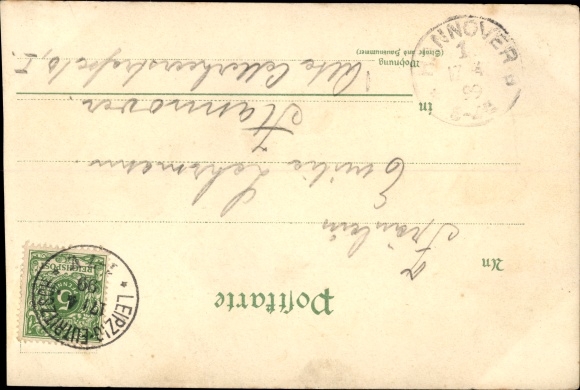 Postkarte
REICHSPOST
5
LEIPZIG-EUTRITZSCH
17/1
99
An
Fräulein
Emilie Lehmann
in
Hannover.
Wohnung
(Straße und Hausnummer)
Alte Cellerheerstraße
HANNOVER
1